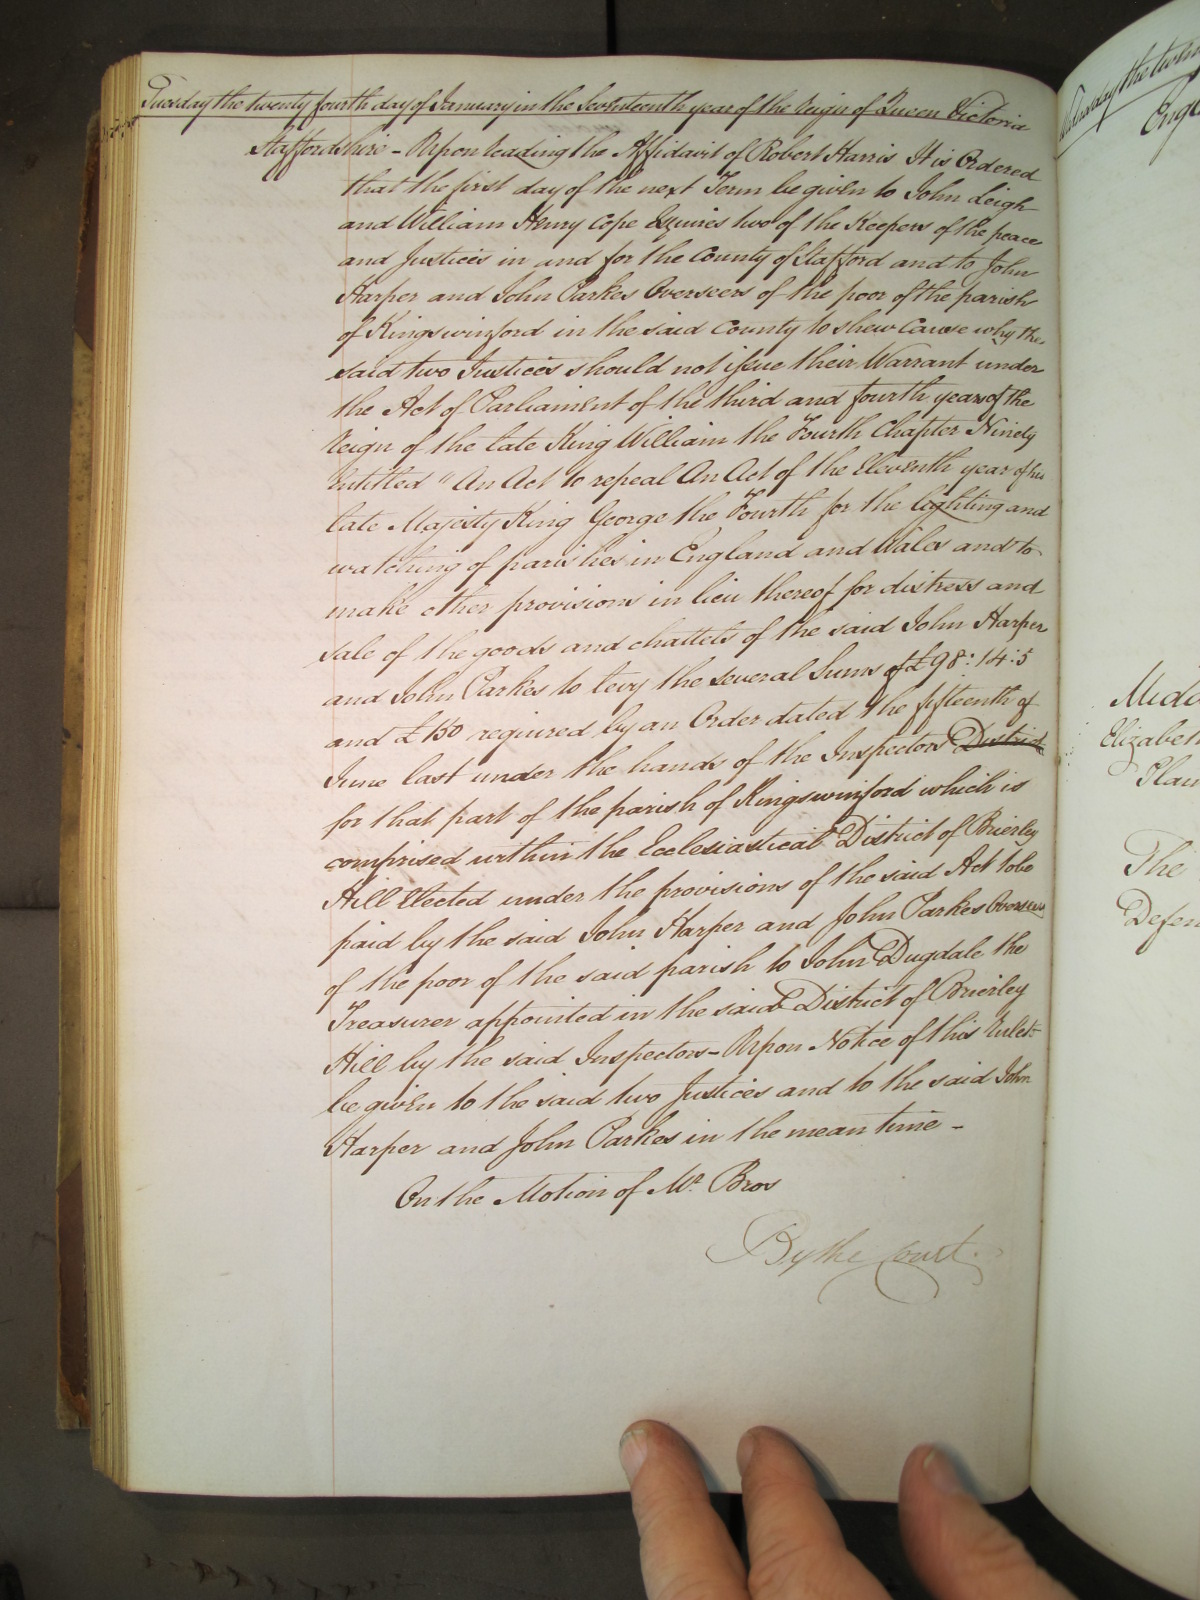 Tuesday the twenty fourth day of January in the Seventeenth year of the Reign of Queen Victoria
Staffordshire - Upon reading the Affidavit of Robert Harris It is Ordered
that the first day of the next Term be given to John Leigh
and William Henry Cope Esquires two of the Keepers of the peace
and Justices in and for the County of Stafford and to John
Harper and John Parkes Overseers of the poor of the parish
of Kingswinford in the said County to shew Cause why the
said two Justices should not issue their Warrant under
the Act of Parliament of the third and fourth years of the
reign of the late King William the Fourth Chapter Ninety
intitled "An Act to repeal An Act of the Eleventh year of his
late Majesty King George the Fourth for the lighting and
watching of parishes in England and Wales and to
make other provisions in lieu thereof for distress and
sale of the goods and chattels of the said John Harper
and John Parkes to levy the several Sums of £98:14:5
and £150 required by an Order dated the fifteenth of
June last under the hands of the Inspectors District
for that part of the parish of Kingswinford which is
comprised within the Ecclesiastical District of Brierley
Hill Elected under the provisions of the said Act to be
paid by the said John Harper and John Parkes Overseers
of the poor of the said parish to John Dugdale the
Treasurer appointed in the said District of Brierley
Hill by the said Inspectors - Upon Notice of this Rule to
be given to the said two Justices and to the said John
Harper and John Parkes in the mean time -
On the Motion of Mr. Bros
By the Court
Wednesday the
Engl
Midd
Elizabeth
Plain
The
Defen